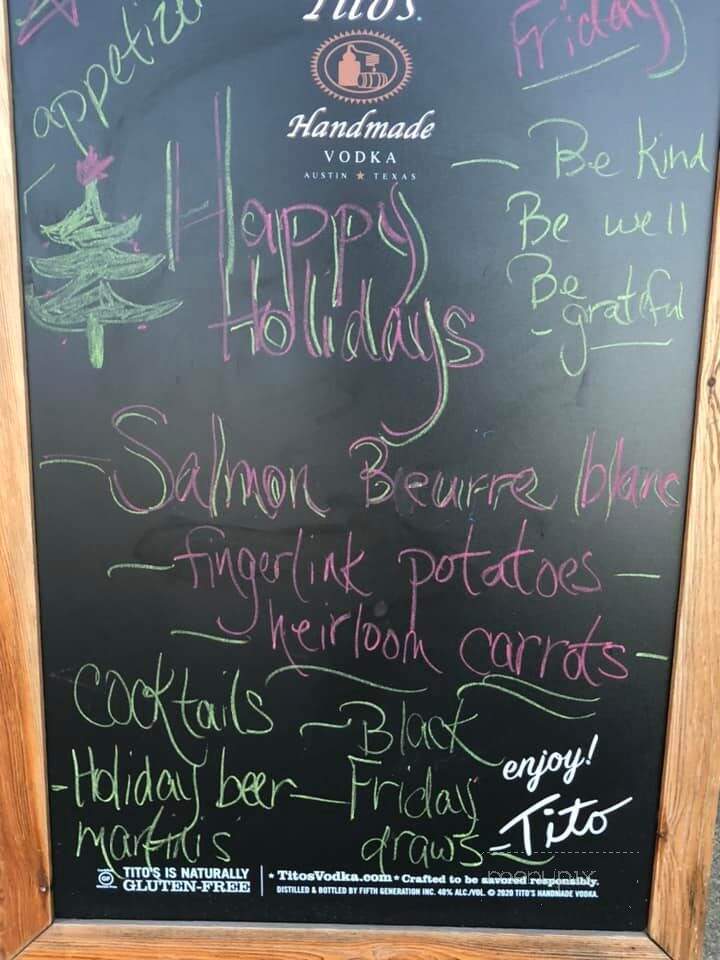 Tito's
Friday
appetize
Handmade
VODKA
AUSTIN ★ TEXAS
Be Kind
Be well
Be
grateful
Happy
Holidays
- Salmon Beurre blanc
- fingerlink potatoes -
- heirloom carrots -
Cocktails
- Holiday beer
martinis
- Black
Friday
draws -
enjoy!
Tito
GF
TITO'S IS NATURALLY
GLUTEN-FREE
★ TitosVodka.com ★ Crafted to be savored responsibly.
DISTILLED & BOTTLED BY FIFTH GENERATION INC. 40% ALC./VOL. © 2020 TITO'S HANDMADE VODKA.
menupix